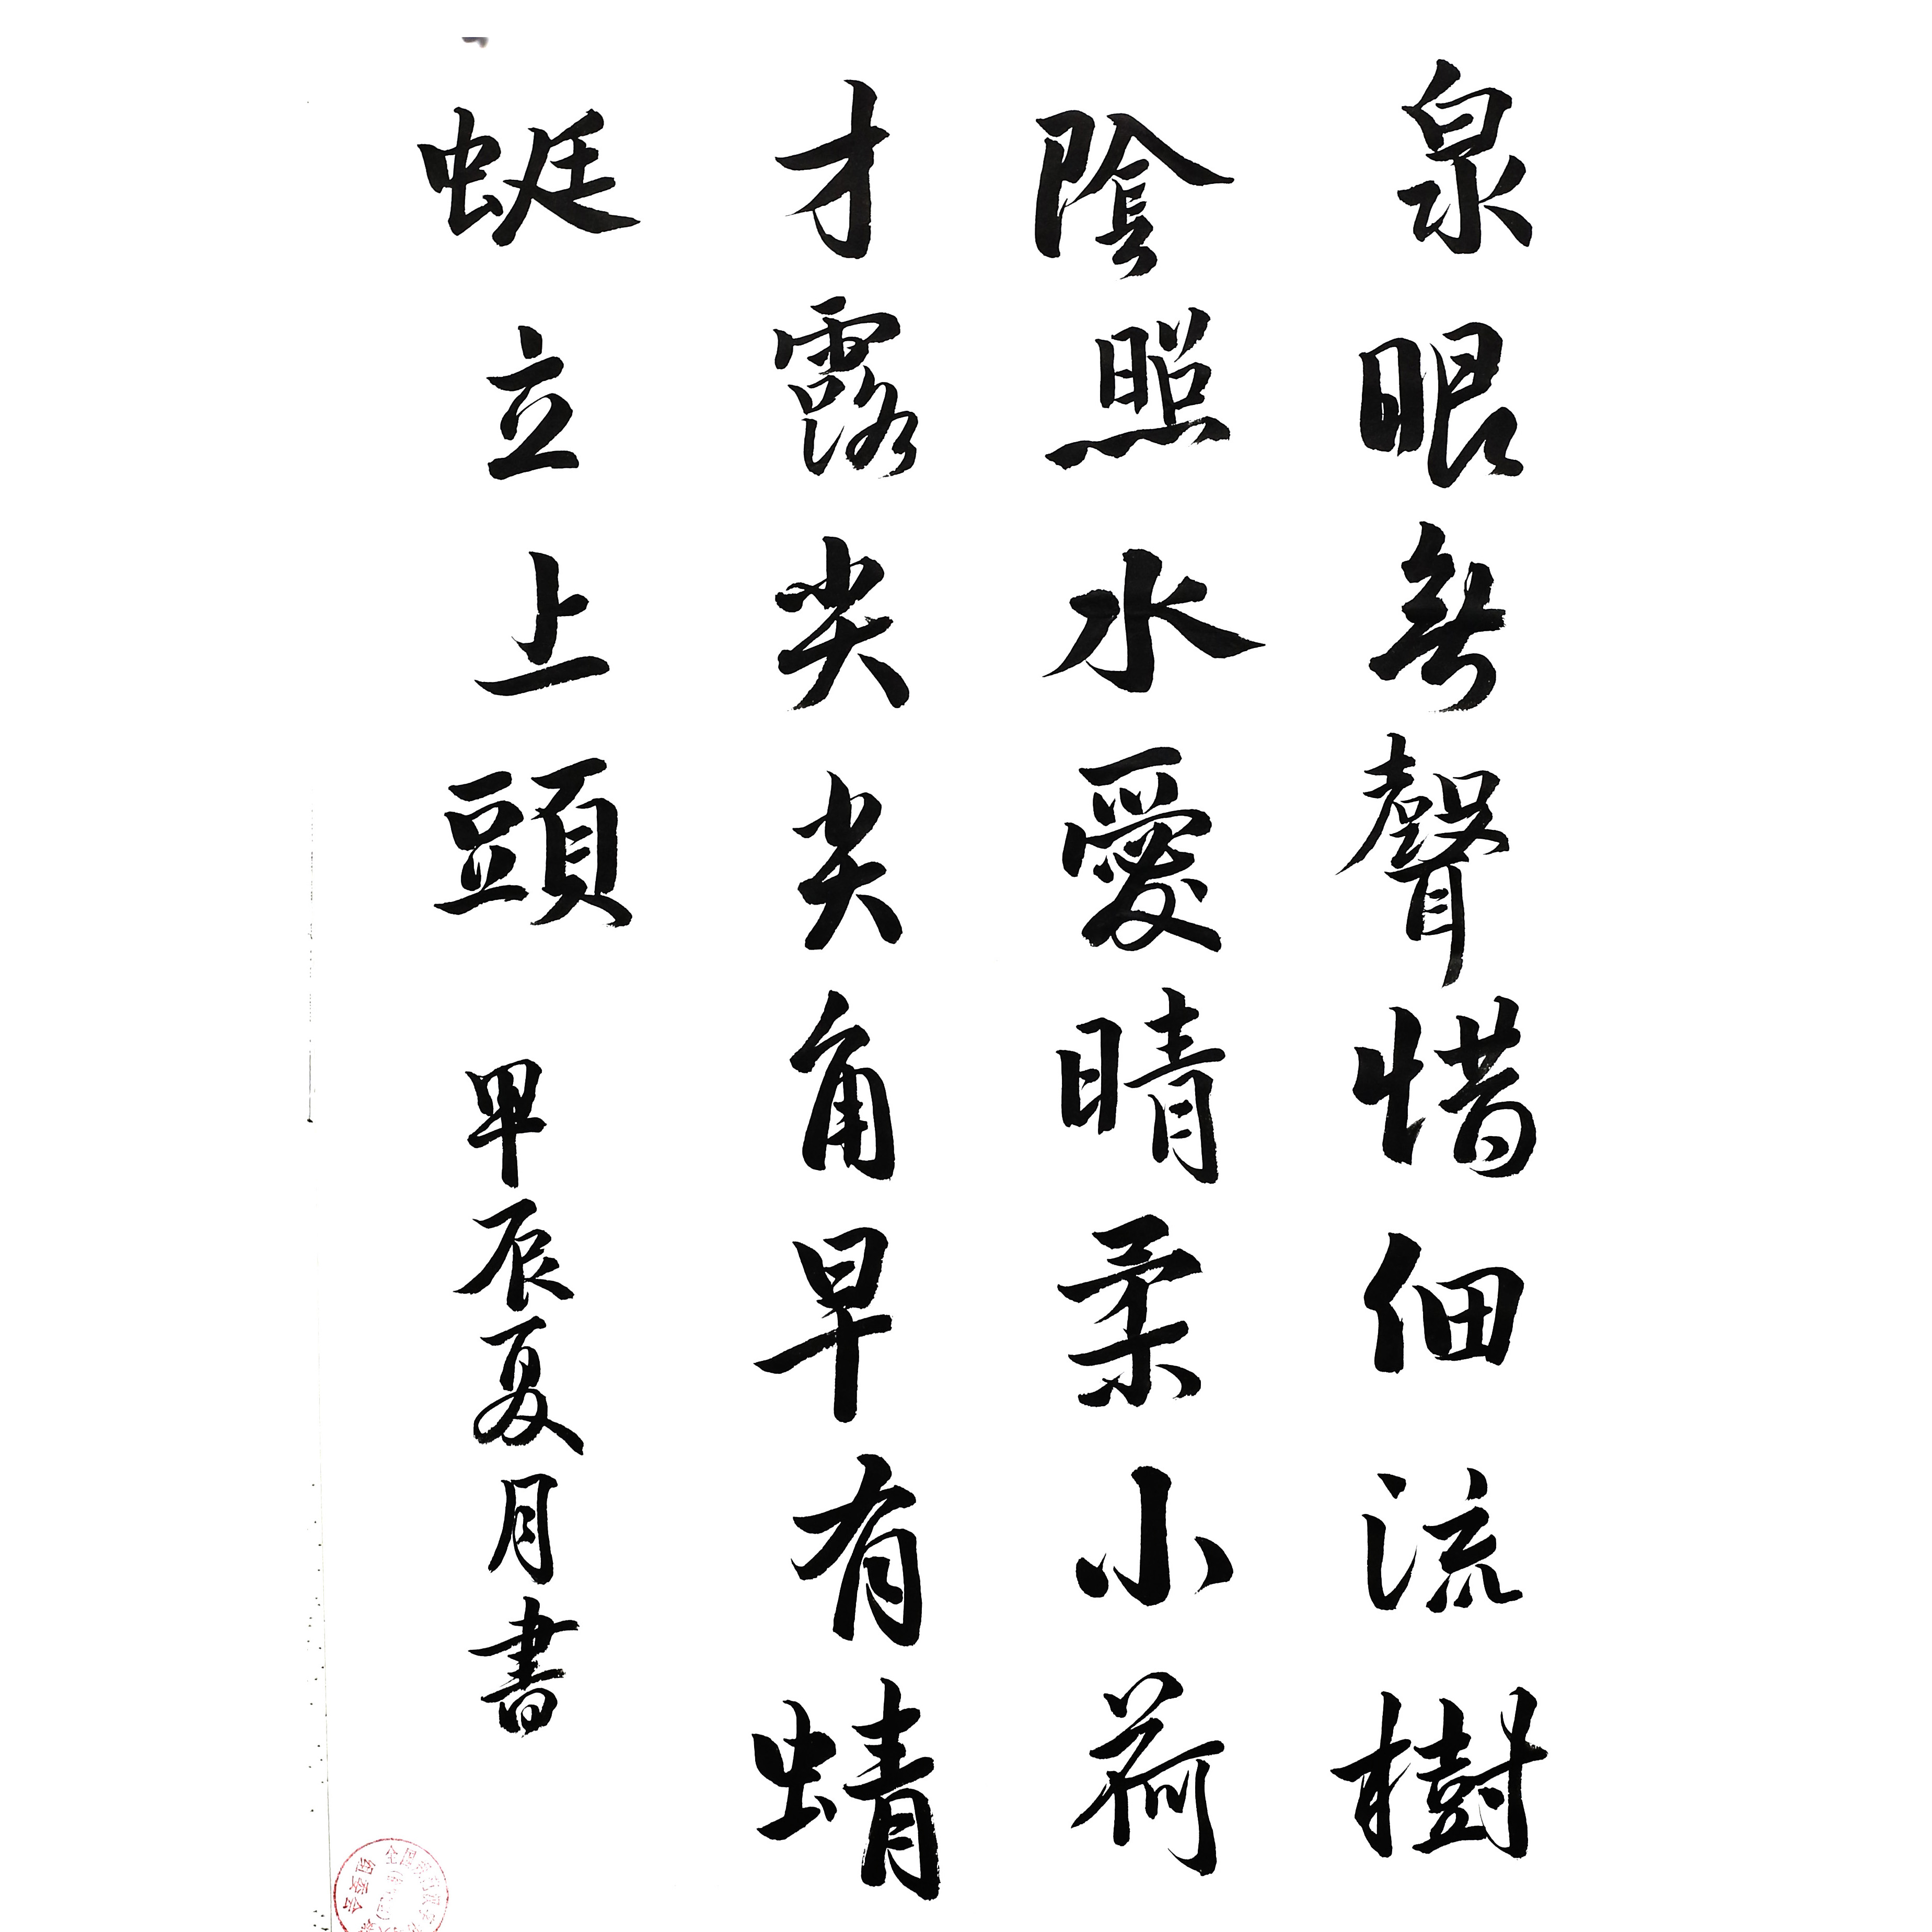 泉眼無聲惜細流樹
陰照水愛晴柔小荷
才露尖尖角早有蜻
蜓立上頭 甲辰夏月書